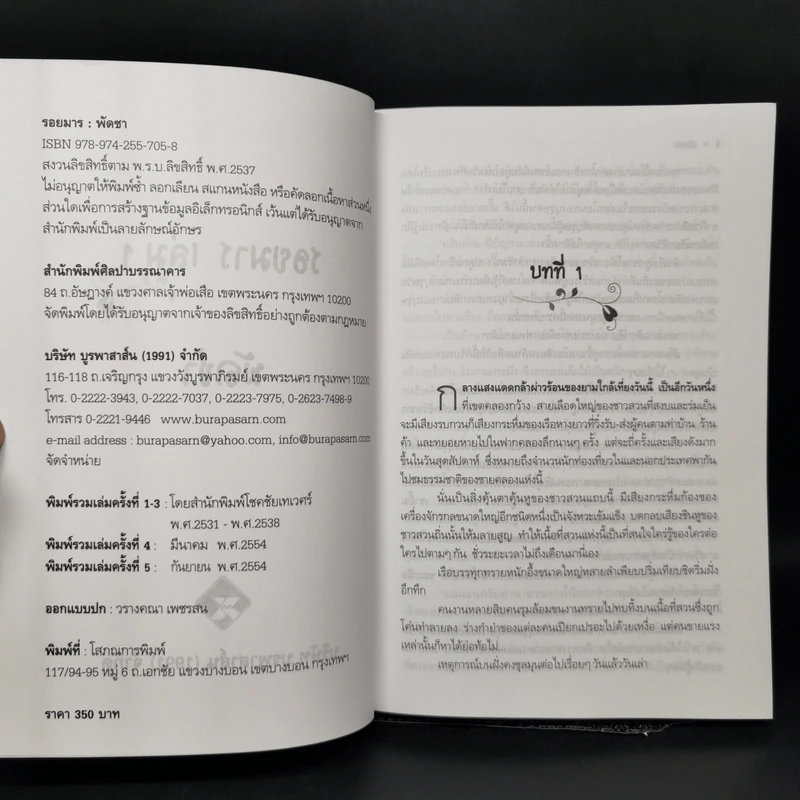 รอยมาร : พัดชา
ISBN 978-974-255-705-8
สงวนลิขสิทธิ์ตาม พ.ร.บ.ลิขสิทธิ์ พ.ศ.2537
ไม่อนุญาตให้พิมพ์ซ้ำ ลอกเลียน สแกนหนังสือ หรือคัดลอกเนื้อหาส่วนหนึ่ง
ส่วนใดเพื่อการสร้างฐานข้อมูลอิเล็กทรอนิกส์ เว้นแต่ได้รับอนุญาตจาก
สำนักพิมพ์เป็นลายลักษณ์อักษร
สำนักพิมพ์ศิลปาบรรณาคาร
84 ถ.อัษฎางค์ แขวงศาลเจ้าพ่อเสือ เขตพระนคร กรุงเทพฯ 10200
จัดพิมพ์โดยได้รับอนุญาตจากเจ้าของลิขสิทธิ์อย่างถูกต้องตามกฎหมาย
บริษัท บูรพาสาส์น (1991) จำกัด
116-118 ถ.เจริญกรุง แขวงวังบูรพาภิรมย์ เขตพระนคร กรุงเทพฯ 10200
โทร. 0-2222-3943, 0-2222-7037, 0-2223-7975, 0-2623-7498-9
โทรสาร 0-2221-9446 www.burapasarn.com
e-mail address : burapasarn@yahoo.com, info@burapasarn.com
จัดจำหน่าย
พิมพ์รวมเล่มครั้งที่ 1-3 : โดยสำนักพิมพ์โชคชัยเทเวศร์
พ.ศ.2531 - พ.ศ.2538
พิมพ์รวมเล่มครั้งที่ 4 : มีนาคม พ.ศ.2554
พิมพ์รวมเล่มครั้งที่ 5 : กันยายน พ.ศ.2554
ออกแบบปก : วรางคณา เพชรสน
พิมพ์ที่ : โสภณการพิมพ์
117/94-95 หมู่ 6 ถ.เอกชัย แขวงบางบอน เขตบางบอน กรุงเทพฯ
ราคา 350 บาท
บทที่ 1
กลางแสงแดดกล้าผ่าวร้อนของยามใกล้เที่ยงวันนี้ เป็นอีกวันหนึ่ง
ที่เขตคลองกว้าง สายเลือดใหญ่ของชาวสวนที่สงบและร่มเย็น
จะมีเสียงรบกวนก็เสียงกระหึ่มของเรือหางยาวที่วิ่งรับ-ส่งผู้คนตามท่าบ้าน ร้าน
ค้า และทยอยหายไปในฟากคลองลึกนานๆ ครั้ง แต่จะถี่ครั้งและเสียงดังมาก
ขึ้นในวันสุดสัปดาห์ ซึ่งหมายถึงจำนวนนักท่องเที่ยวในและนอกประเทศพากัน
ไปชมธรรมชาติของชายคลองแห่งนี้
นั่นเป็นสิ่งคุ้นตาคุ้นหูของชาวสวนแถบนี้ มีเสียงกระหึ่มก้องของ
เครื่องจักรกลขนาดใหญ่อีกชนิดหนึ่งเป็นจังหวะเข้มแข็ง บดกลบเสียงชินหูของ
ชาวสวนถิ่นนั้นให้มลายสูญ ทำให้เนื้อที่สวนแห่งนี้เป็นที่สนใจใคร่รู้ของใครต่อ
ใครไปตามๆ กัน ชั่วระยะเวลาไม่ถึงเดือนมานี้เอง
เรือบรรทุกทรายหนักอึ้งขนาดใหญ่หลายลำเพียบปริ่มเทียบชิดริมฝั่ง
อึกทึก
คนงานหลายสิบคนรุมล้อมขนงานทรายไปทบทิ้งบนเนื้อที่สวนซึ่งถูก
โค่นทำลายลง ร่างกำยำของแต่ละคนเปียกเปรอะไปด้วยเหงื่อ แต่คนขายแรง
เหล่านั้นก็หาได้ย่อท้อไม่
เหตุการณ์บนฝั่งคงชุลมุนต่อไปเรื่อยๆ วันแล้ววันเล่า